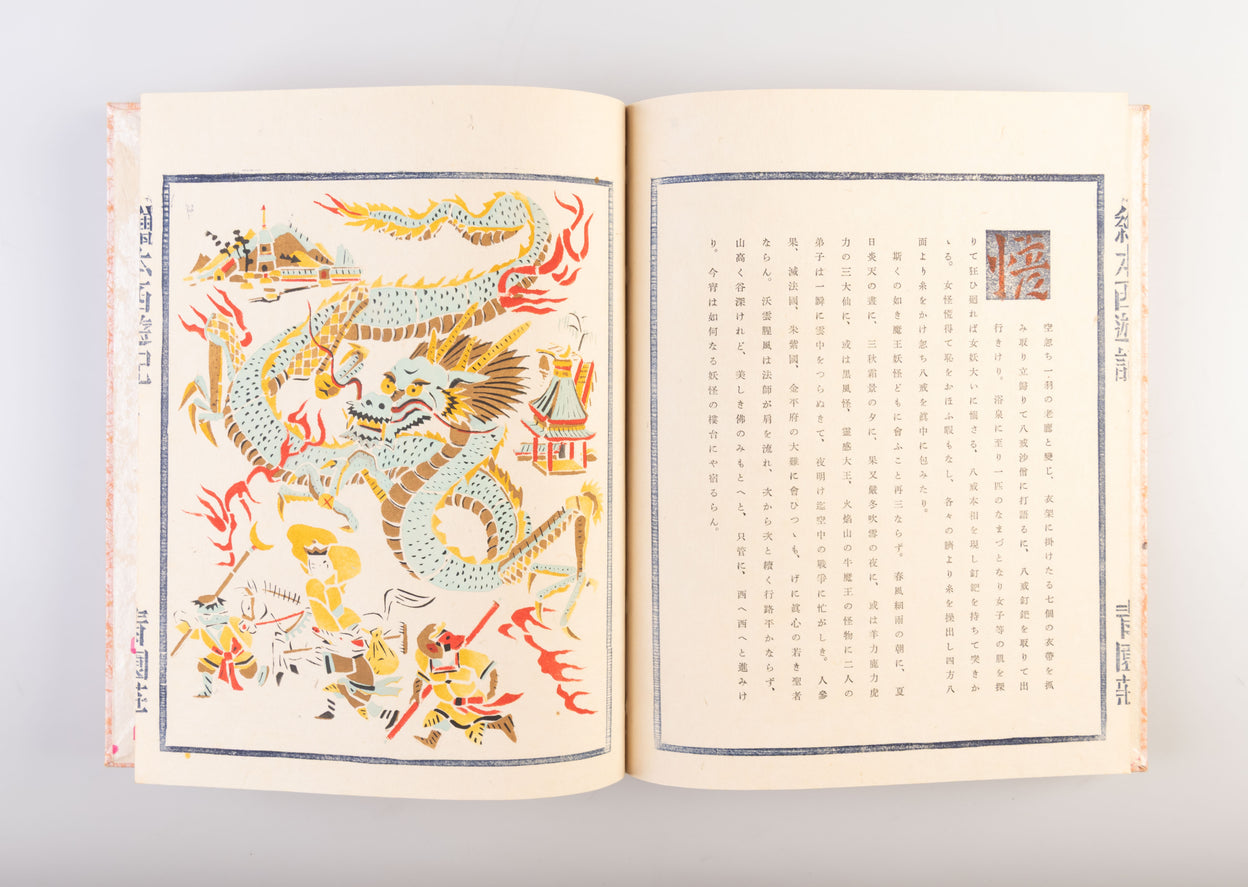 繪本西遊記
悟
空忽ち一羽の老鷹と變じ、衣架に掛けたる七個の衣帶を抓
み取り立歸りて八戒沙僧に打語るに、八戒釘鈀を取りて出
行きけり。浴泉に至り一匹のなまづとなり女子等の肌を探
りて狂ひ廻れば女妖大いに惱さる、八戒本相を現し釘鈀を持ちて突きか
ゝる。女怪慌得て恥をおほふ暇もなし、各々の臍より糸を操出し四方八
面より糸をかけ忽ち八戒を眞中に包みたり。
斯くの如き魔王妖怪どもに會ふこと再三ならず。春風細雨の朝に、夏
日炎天の晝に、三秋霜景の夕に、果又嚴冬吹雪の夜に、或は羊力鹿力虎
力の三大仙に、或は黒風怪、靈感大王、火焰山の牛魔王の怪物に二人の
弟子は一瞬に雲中をつらぬきて、夜明け迄空中の戰爭に忙がしき。人參
果、滅法國、朱紫國、金平府の大難に會ひつゝも、げに眞心の若き聖者
ならん。沃雲腥風は法師が肩を流れ、次から次と續く行路平かならず、
山高く谷深けれど、美しき佛のみもとへと、只管に、西へ西へと進みけ
り。今宵は如何なる妖怪の樓台にや宿るらん。